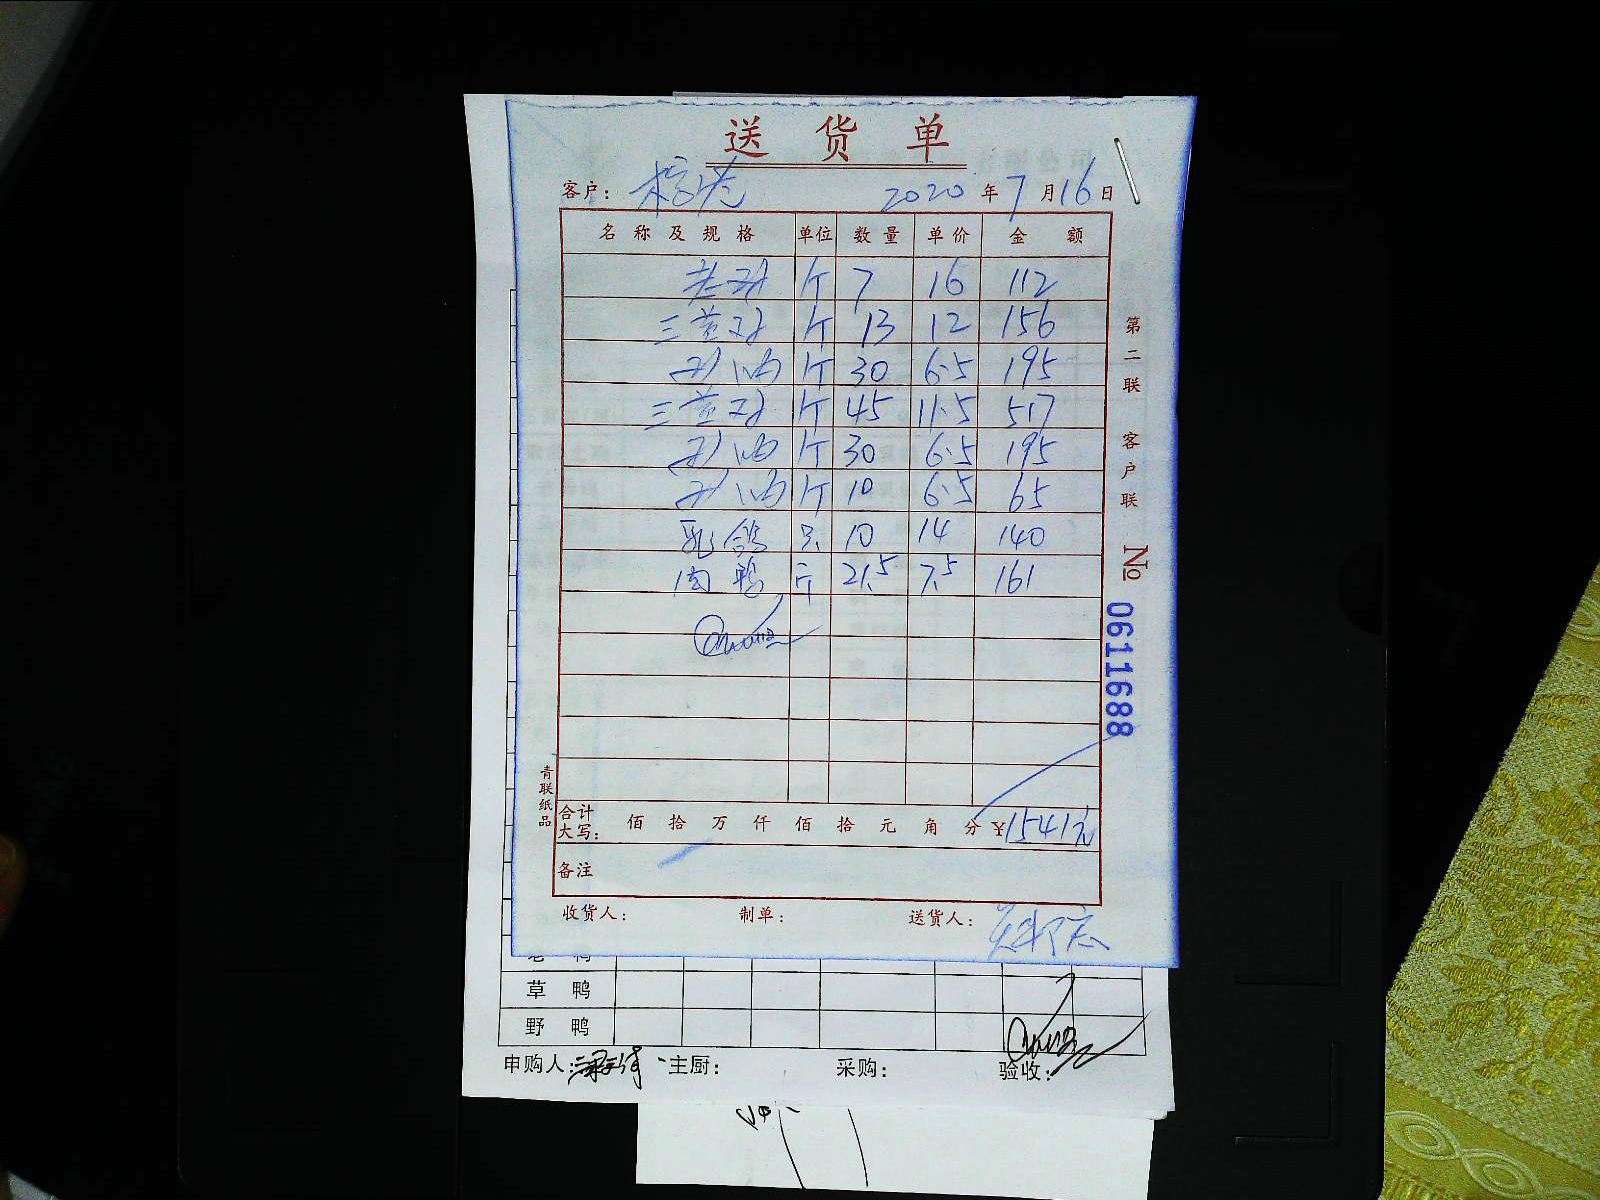 送货单
客户： 2020年7月16日
名称及规格 单位 数量 单价 金额
个 7 16 112
三黄 个 13 12 156
个 30 6.5 195
三黄 个 45 11.5 517
个 30 6.5 195
个 10 6.5 65
乳鸽 只 10 14 140
肉鸭 斤 21.5 7.5 161
合计大写： 佰 拾 万 仟 佰 拾 元 角 分 ¥1541元
备注
收货人： 制单： 送货人：
第二联 客户联
№ 0611688
青联纸品
草鸭
野鸭
申购人： 主厨： 采购： 验收：